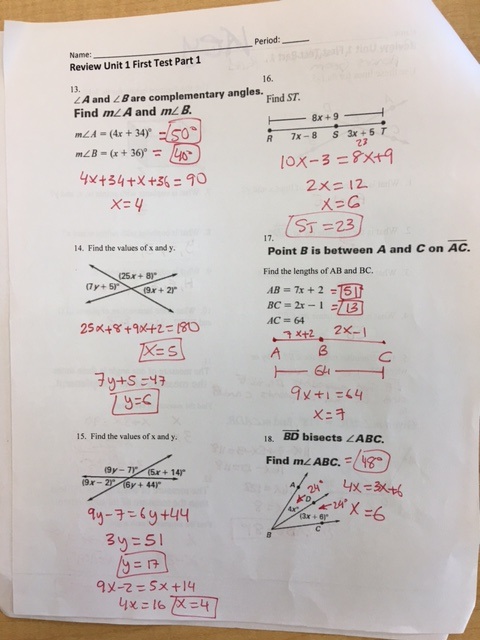 Name:
Period:
Review Unit 1 First Test Part 1
13.
∠A and ∠B are complementary angles.
Find m∠A and m∠B.
m∠A = (4x + 34)° = 50°
m∠B = (x + 36)° = 40°
4x+34+x+36=90
x=4
14. Find the values of x and y.
(25x + 8)°
(7y + 5)°
(9x + 2)°
25x+8+9x+2=180
x=5
7y+5=47
y=6
15. Find the values of x and y.
(9y – 7)° (5x + 14)°
(9x – 2)° (6y + 44)°
9y-7=6y+44
3y=51
y=17
9x-2=5x+14
4x=16 x=4
16.
Find ST.
8x + 9
R 7x – 8 S 3x + 5 T
23
10x-3=8x+9
2x=12
x=6
ST=23
17.
Point B is between A and C on AC.
Find the lengths of AB and BC.
AB = 7x + 2 = 51
BC = 2x – 1 = 13
AC = 64
7x+2 2x-1
A B C
64
9x+1=64
x=7
18. BD bisects ∠ABC.
Find m∠ABC. = 48°
A 24° 4x=3x+6
D
4x° 24° x=6
(3x + 6)°
B C